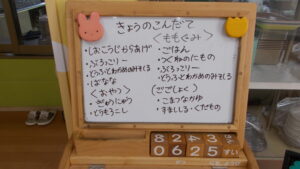 きょうのこんだて
・しおこうじからあげ
・ぶろっこりー
・とうふとわかめのみそしる
・ばなな
<おやつ>
・ぎゅうにゅう
・とうもろこし
<ももぐみ>
・ごはん
・つくねのにもの
・ぶろっこりー
・とうふとわかめのみそしる
(ごごしょく)
・こまつなかゆ
・すましじる・くだもの
8 2 4 3
0 6 2 5 すい